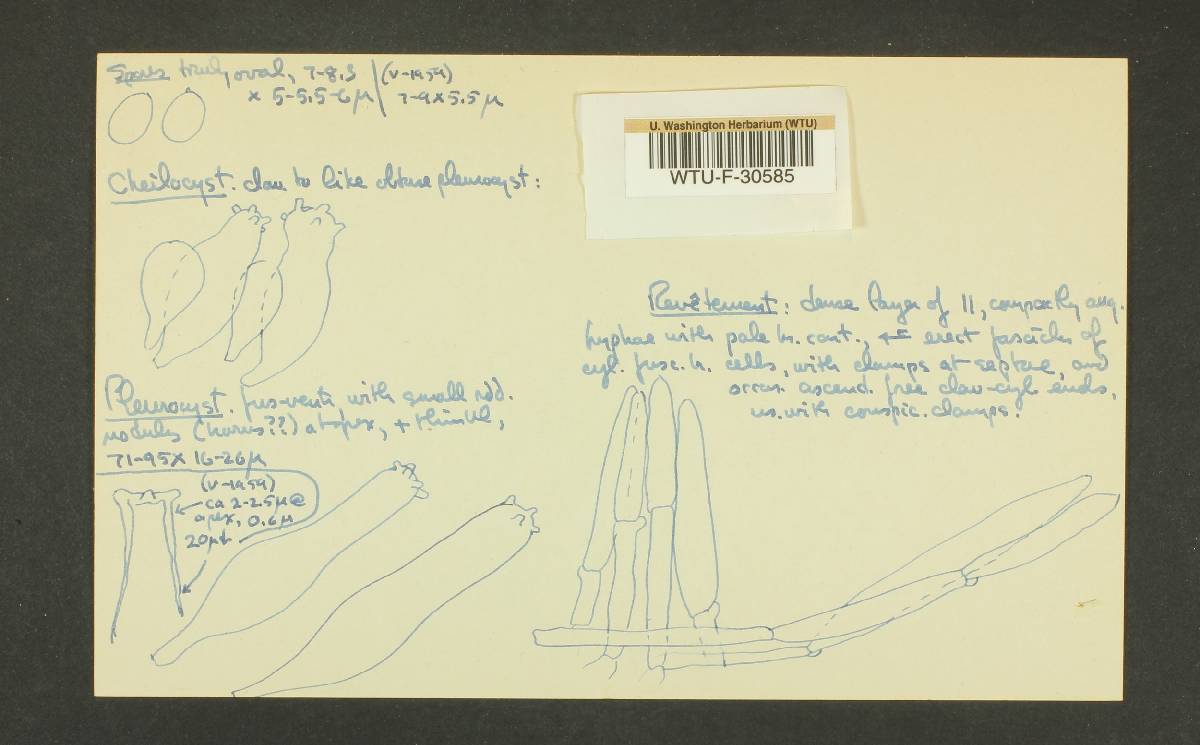 Spores truly oval, 7-8.5 | (V-1959)
x 5-5.5-6 µ | 7-9 x 5.5 µ
U. Washington Herbarium (WTU)
WTU-F-30585
Cheilocyst. clav. to like obtuse pleurocyst:
Revêtement: dense layer of ||, compactly ang.
hyphae with pale br. cont., +- erect fascicles of
cyl. fusc. br. cells, with clamps at septae, and
occas. ascend. free clav-cyl ends,
us. with conspic. clamps!
Pleurocyst. fus-ventr. with small rdd.
nodules (horns??) at apex, + thinwld,
71-95 x 16-26 µ
(V-1959)
ca 2-2.5 µ @
apex, 0.6 µ
20 µ